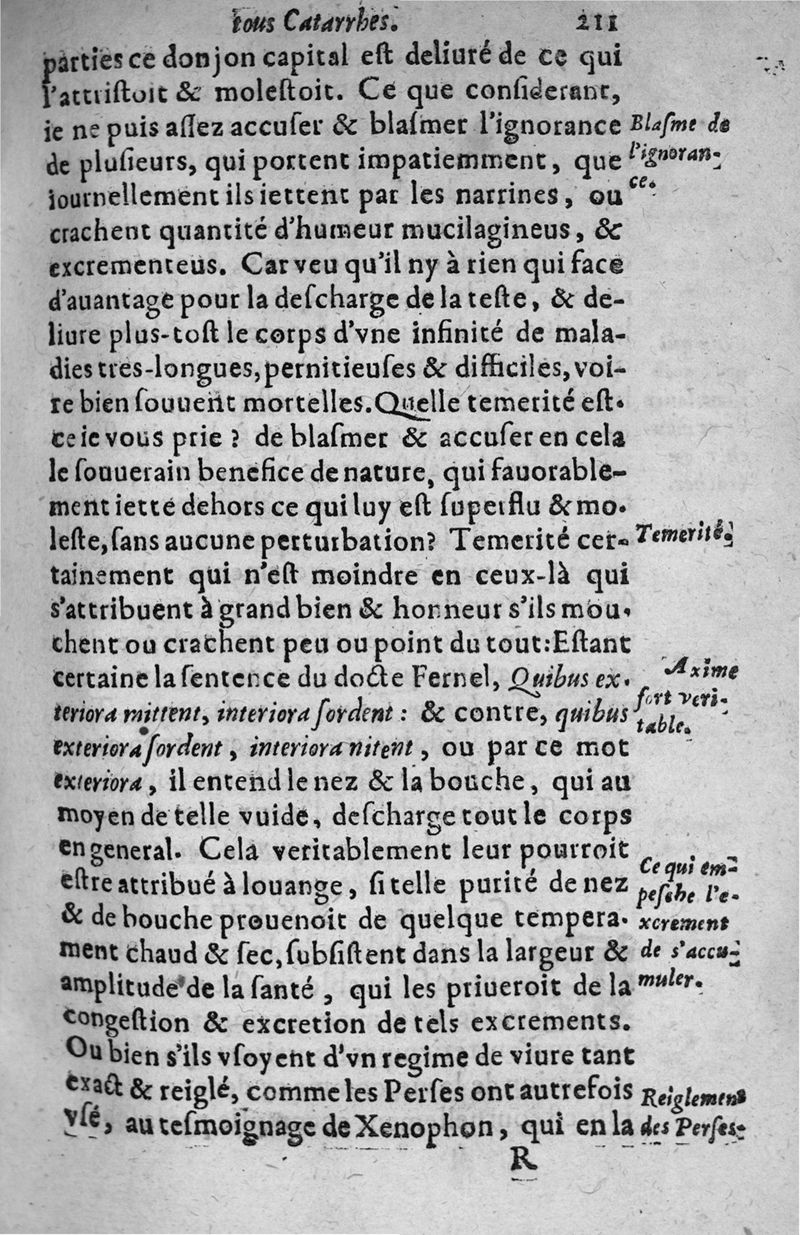 tous Catarrhes. 211
parties ce donjon capital eſt deliuré de ce qui
l'attriſtoit & moleſtoit. Ce que conſiderant,
ie ne puis aſſez accuſer & blaſmer l'ignorance
Blaſme de
l'ignoran-
ce.
de pluſieurs, qui portent impatiemment, que
iournellement ils iettent par les narrines, ou
crachent quantité d'humeur mucilagineus, &
excrementeus. Car veu qu'il ny à rien qui face
d'auantage pour la deſcharge de la teſte, & de-
liure plus-toſt le corps d'vne infinité de mala-
dies tres-longues, pernitieuſes & difficiles, voi-
re bien ſouuent mortelles. Quelle temerité eſt-
ce ie vous prie ? de blaſmer & accuſer en cela
le ſouuerain benefice de nature, qui fauorable-
ment iette dehors ce qui luy eſt ſuperflu & mo-
leſte, ſans aucune perturbation? Temerité cer-
Temerité.
tainement qui n'eſt moindre en ceux-là qui
s'attribuent à grand bien & honneur s'ils mou-
chent ou crachent peu ou point du tout: Eſtant
certaine la ſentence du docte Fernel, Quibus ex-
Axime
fort veri-
table.
teriora mittent, interiora ſordent : & contre, quibus
exteriora ſordent, interiora nitent, ou par ce mot
exteriora, il entend le nez & la bouche, qui au
moyen de telle vuide, deſcharge tout le corps
en general. Celà veritablement leur pourroit
eſtre attribué à louange, ſi telle purité de nez
Ce qui em-
peſche l'e-
xcrement
de s'accu-
muler.
& de bouche prouenoit de quelque tempera-
ment chaud & ſec, ſubſiſtent dans la largeur &
amplitude de la ſanté, qui les priueroit de la
congeſtion & excretion de tels excrements.
Ou bien s'ils vſoyent d'vn regime de viure tant
exact & reiglé, comme les Perſes ont autrefois
Reiglement
des Perſes.
vſé, au teſmoignage de Xenophon, qui en la
R